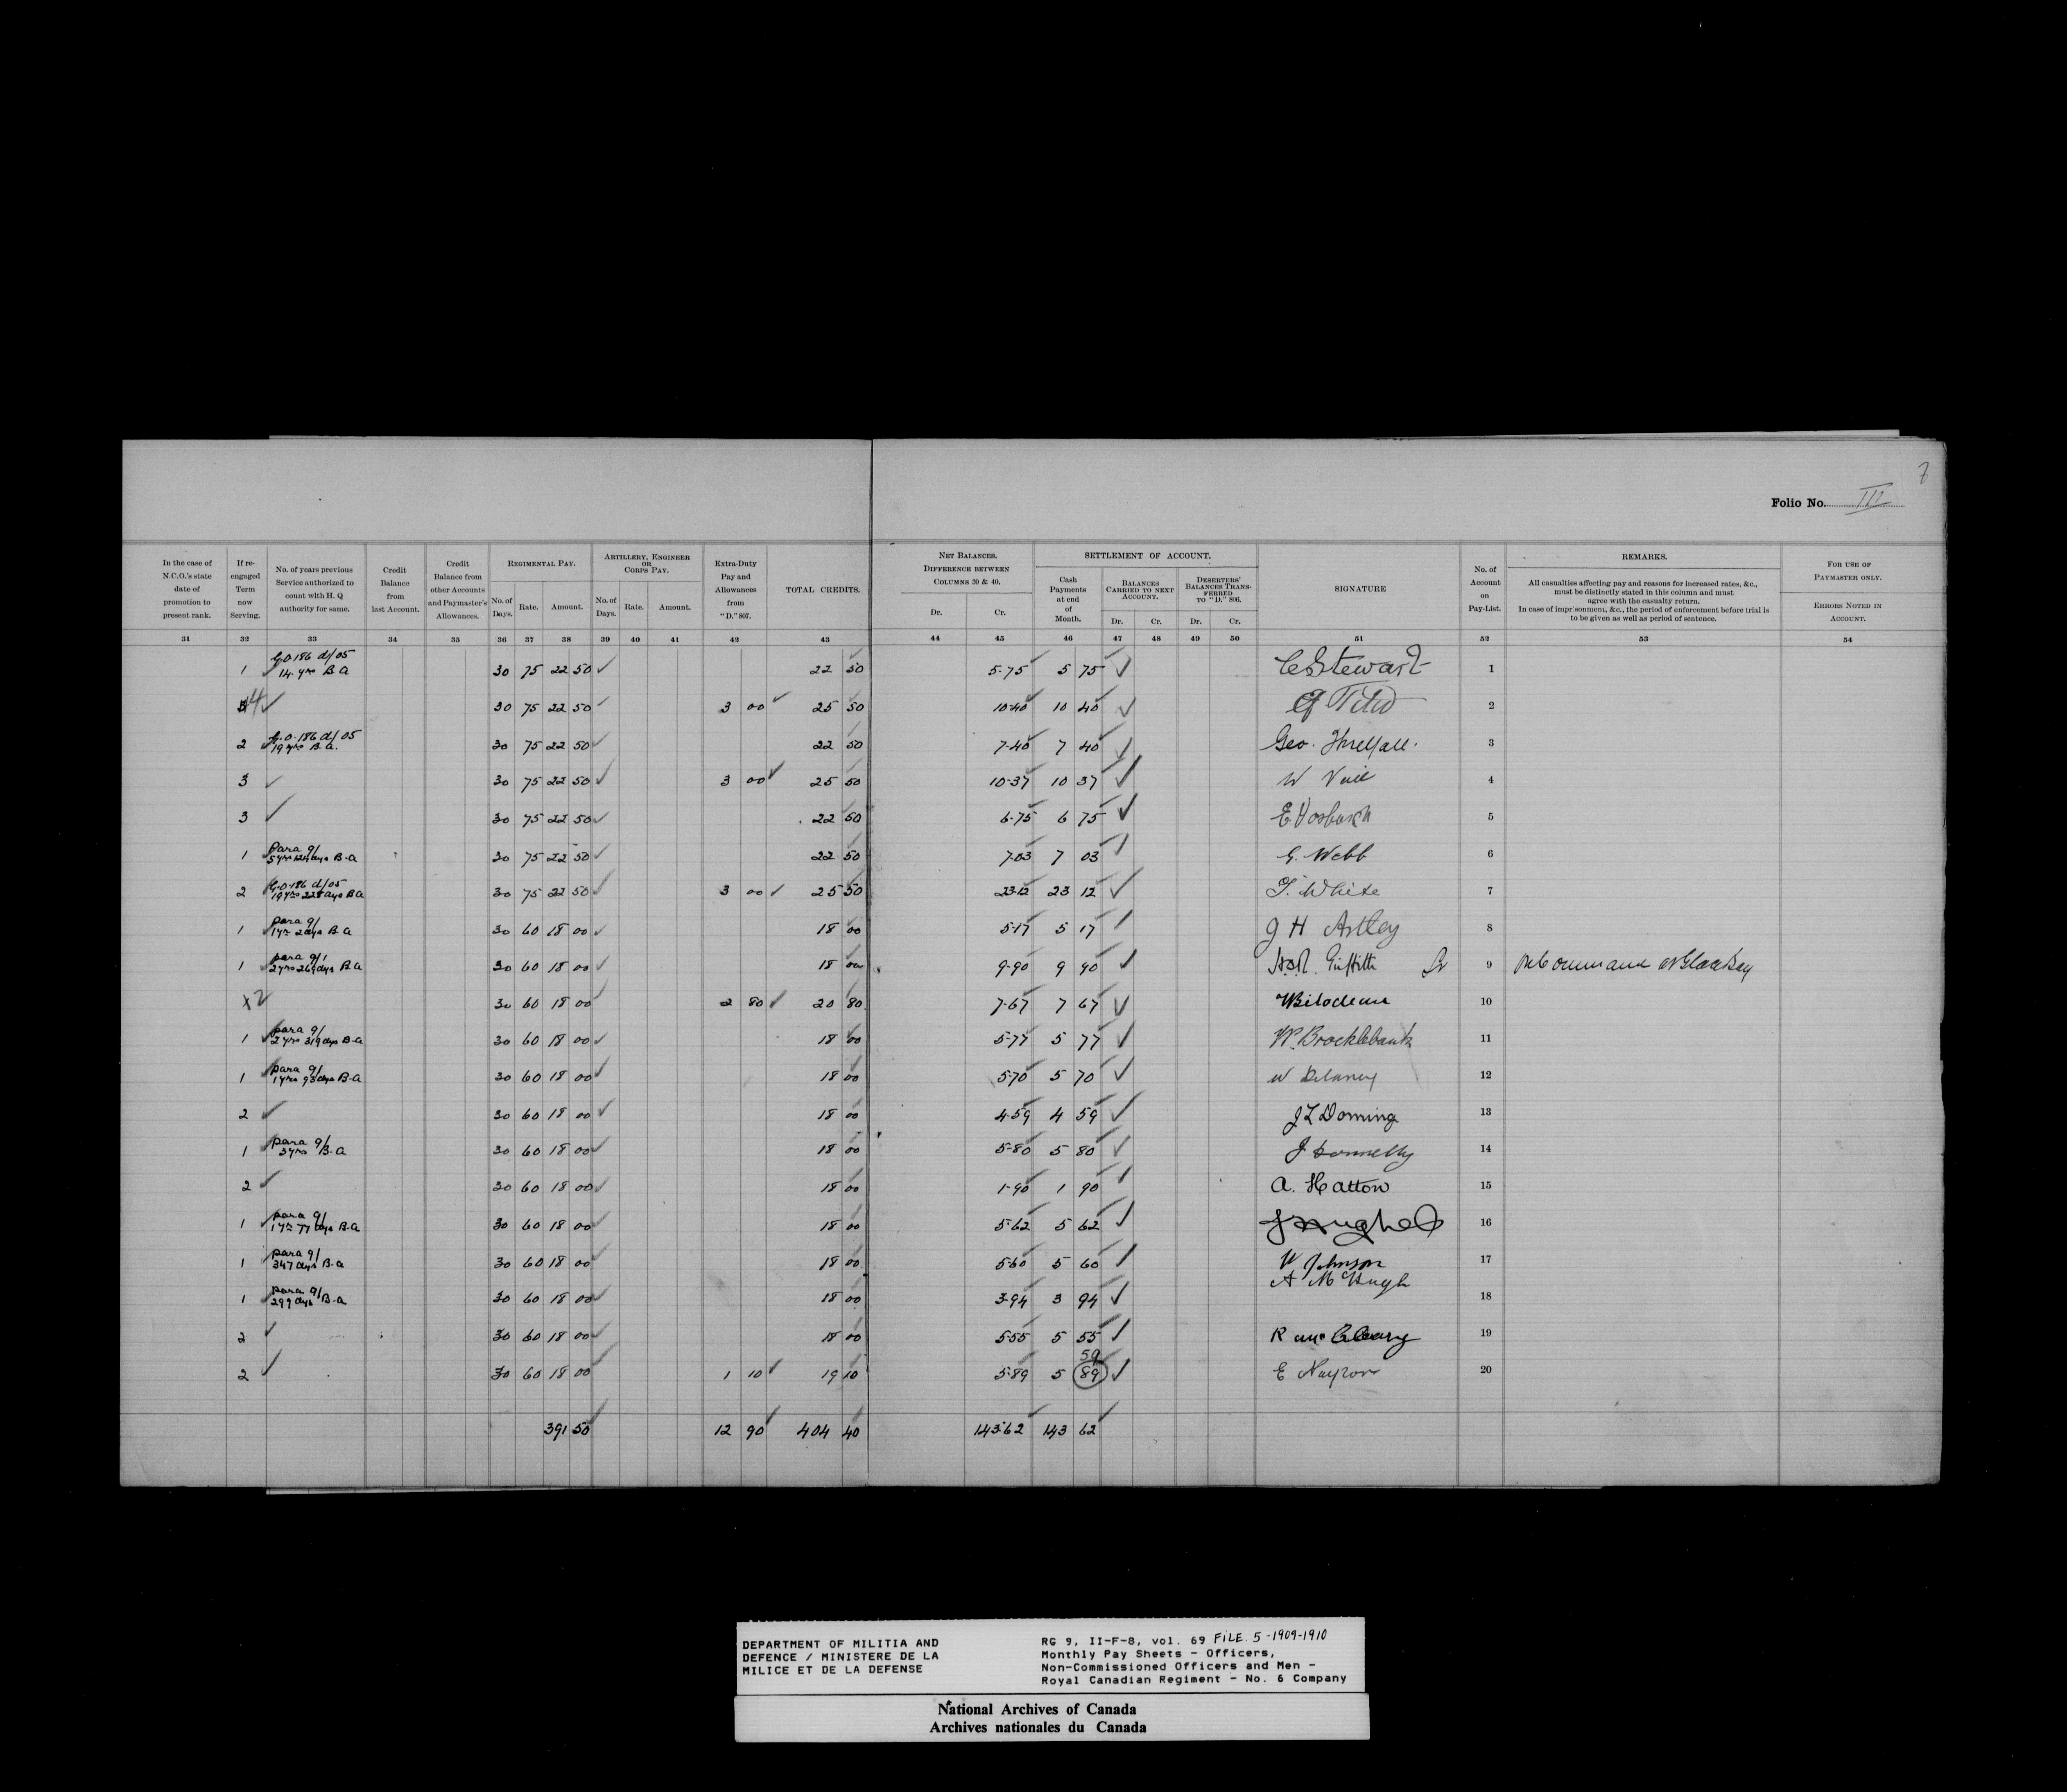 7
Folio No. III
In the case of N.C.O.'s state date of promotion to present rank.
If re-engaged Term now Serving.
No. of years previous Service authorized to count with H. Q authority for same.
Credit Balance from last Account.
Credit Balance from other Accounts and Paymaster's Allowances.
REGIMENTAL PAY.
No. of Days. Rate. Amount.
ARTILLERY, ENGINEER OR CORPS PAY.
No. of Days. Rate. Amount.
Extra-Duty Pay and Allowances from "D." 807.
TOTAL CREDITS.
NET BALANCES. DIFFERENCE BETWEEN COLUMNS 30 & 40.
Dr. Cr.
SETTLEMENT OF ACCOUNT.
Cash Payments at end of Month.
BALANCES CARRIED TO NEXT ACCOUNT.
Dr. Cr.
DESERTERS' BALANCES TRANSFERRED TO "D." 806.
Dr. Cr.
SIGNATURE
No. of Account on Pay-List.
REMARKS.
All casualties affecting pay and reasons for increased rates, &c., must be distinctly stated in this column and must agree with the casualty return.
In case of imprisonment, &c., the period of enforcement before trial is to be given as well as period of sentence.
FOR USE OF PAYMASTER ONLY.
ERRORS NOTED IN ACCOUNT.
31 32 33 34 35 36 37 38 39 40 41 42 43 44 45 46 47 48 49 50 51 52 53 54
1 G.O 186 d/05 14 yrs B A 30 75 22 50 22 50 5.75 5 75 C Stewart 1
4 30 75 22 50 3 00 25 50 10.40 10 40 2
2 G.O. 186 d/05 19 yrs B A. 30 75 22 50 22 50 7.40 7 40 Geo. Threlfall. 3
3 30 75 22 50 3 00 25 50 10.37 10 37 W Vail 4
3 30 75 22 50 22 50 6.75 6 75 E Vosburgh 5
1 Para 91 5 yrs days B.A 30 75 22 50 22 50 7.03 7 03 G. Webb 6
2 G.O. 186 d/05 19 yrs 228 days B A 30 75 22 50 3 00 25 50 23.12 23 12 T. White 7
1 para 91 1 yr 2 days B A 30 60 18 00 18 00 5.17 5 17 J H Astley 8
1 para 91 2 yrs 269 days B A 30 60 18 00 18 00 9.90 9 90 Griffith 9 On Command at Glace Bay
x2 30 60 18 00 2 80 20 80 7.67 7 67 Bilodeau 10
1 para 91 2 yrs 319 days B.A 30 60 18 00 18 00 5.77 5 77 W.P. Brocklebank 11
1 para 91 1 yrs 93 days B.A 30 60 18 00 18 00 5.70 5 70 W Delaney 12
2 30 60 18 00 18 00 4.59 4 59 J L Doming 13
1 para 91 3 yrs B.A 30 60 18 00 18 00 5.80 5 80 J Donnelly 14
2 30 60 18 00 18 00 1.90 1 90 A. Hatton 15
1 para 91 1 yr 77 days B.A 30 60 18 00 18 00 5.62 5 62 J Hughes 16
1 para 91 347 days B.A 30 60 18 00 18 00 5.60 5 60 W Johnson 17
1 para 91 299 days B.A 30 60 18 00 18 00 3.94 3 94 A McHugh 18
2 30 60 18 00 18 00 5.55 5 55 R McCleary 19
2 30 60 18 00 1 10 19 10 5.89 5 59 89 E 20
391 50 12 90 404 40 143.62 143 62
DEPARTMENT OF MILITIA AND
DEFENCE / MINISTERE DE LA
MILICE ET DE LA DEFENSE
RG 9, II-F-8, vol. 69 FILE. 5-1909-1910
Monthly Pay Sheets - Officers,
Non-Commissioned Officers and Men -
Royal Canadian Regiment - No. 6 Company
National Archives of Canada
Archives nationales du Canada